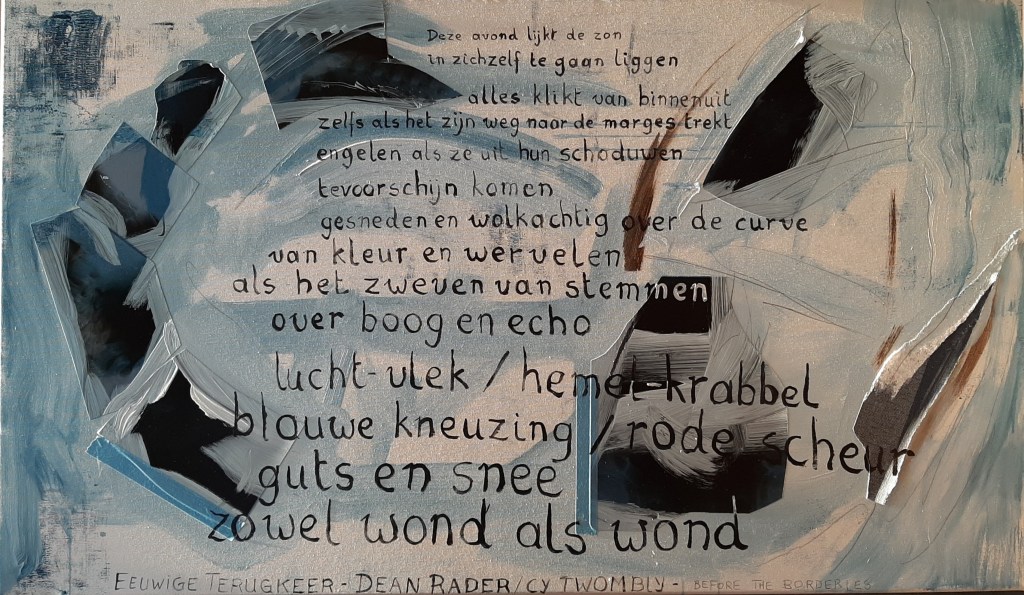 Deze avond lijkt de zon
in zichzelf te gaan liggen
alles klikt van binnenuit
zelfs als het zijn weg naar de marges trekt
engelen als ze uit hun schaduwen
tevoorschijn komen
gesneden en wolkachtig over de curve
van kleur en wervelen
als het zweven van stemmen
over boog en echo
lucht-vlek / hemel-krabbel
blauwe kneuzing / rode scheur
guts en snee
zowel wond als wond
EEUWIGE TERUGKEER - DEAN RADER / CY TWOMBLY - BEFORE THE BORDERLES